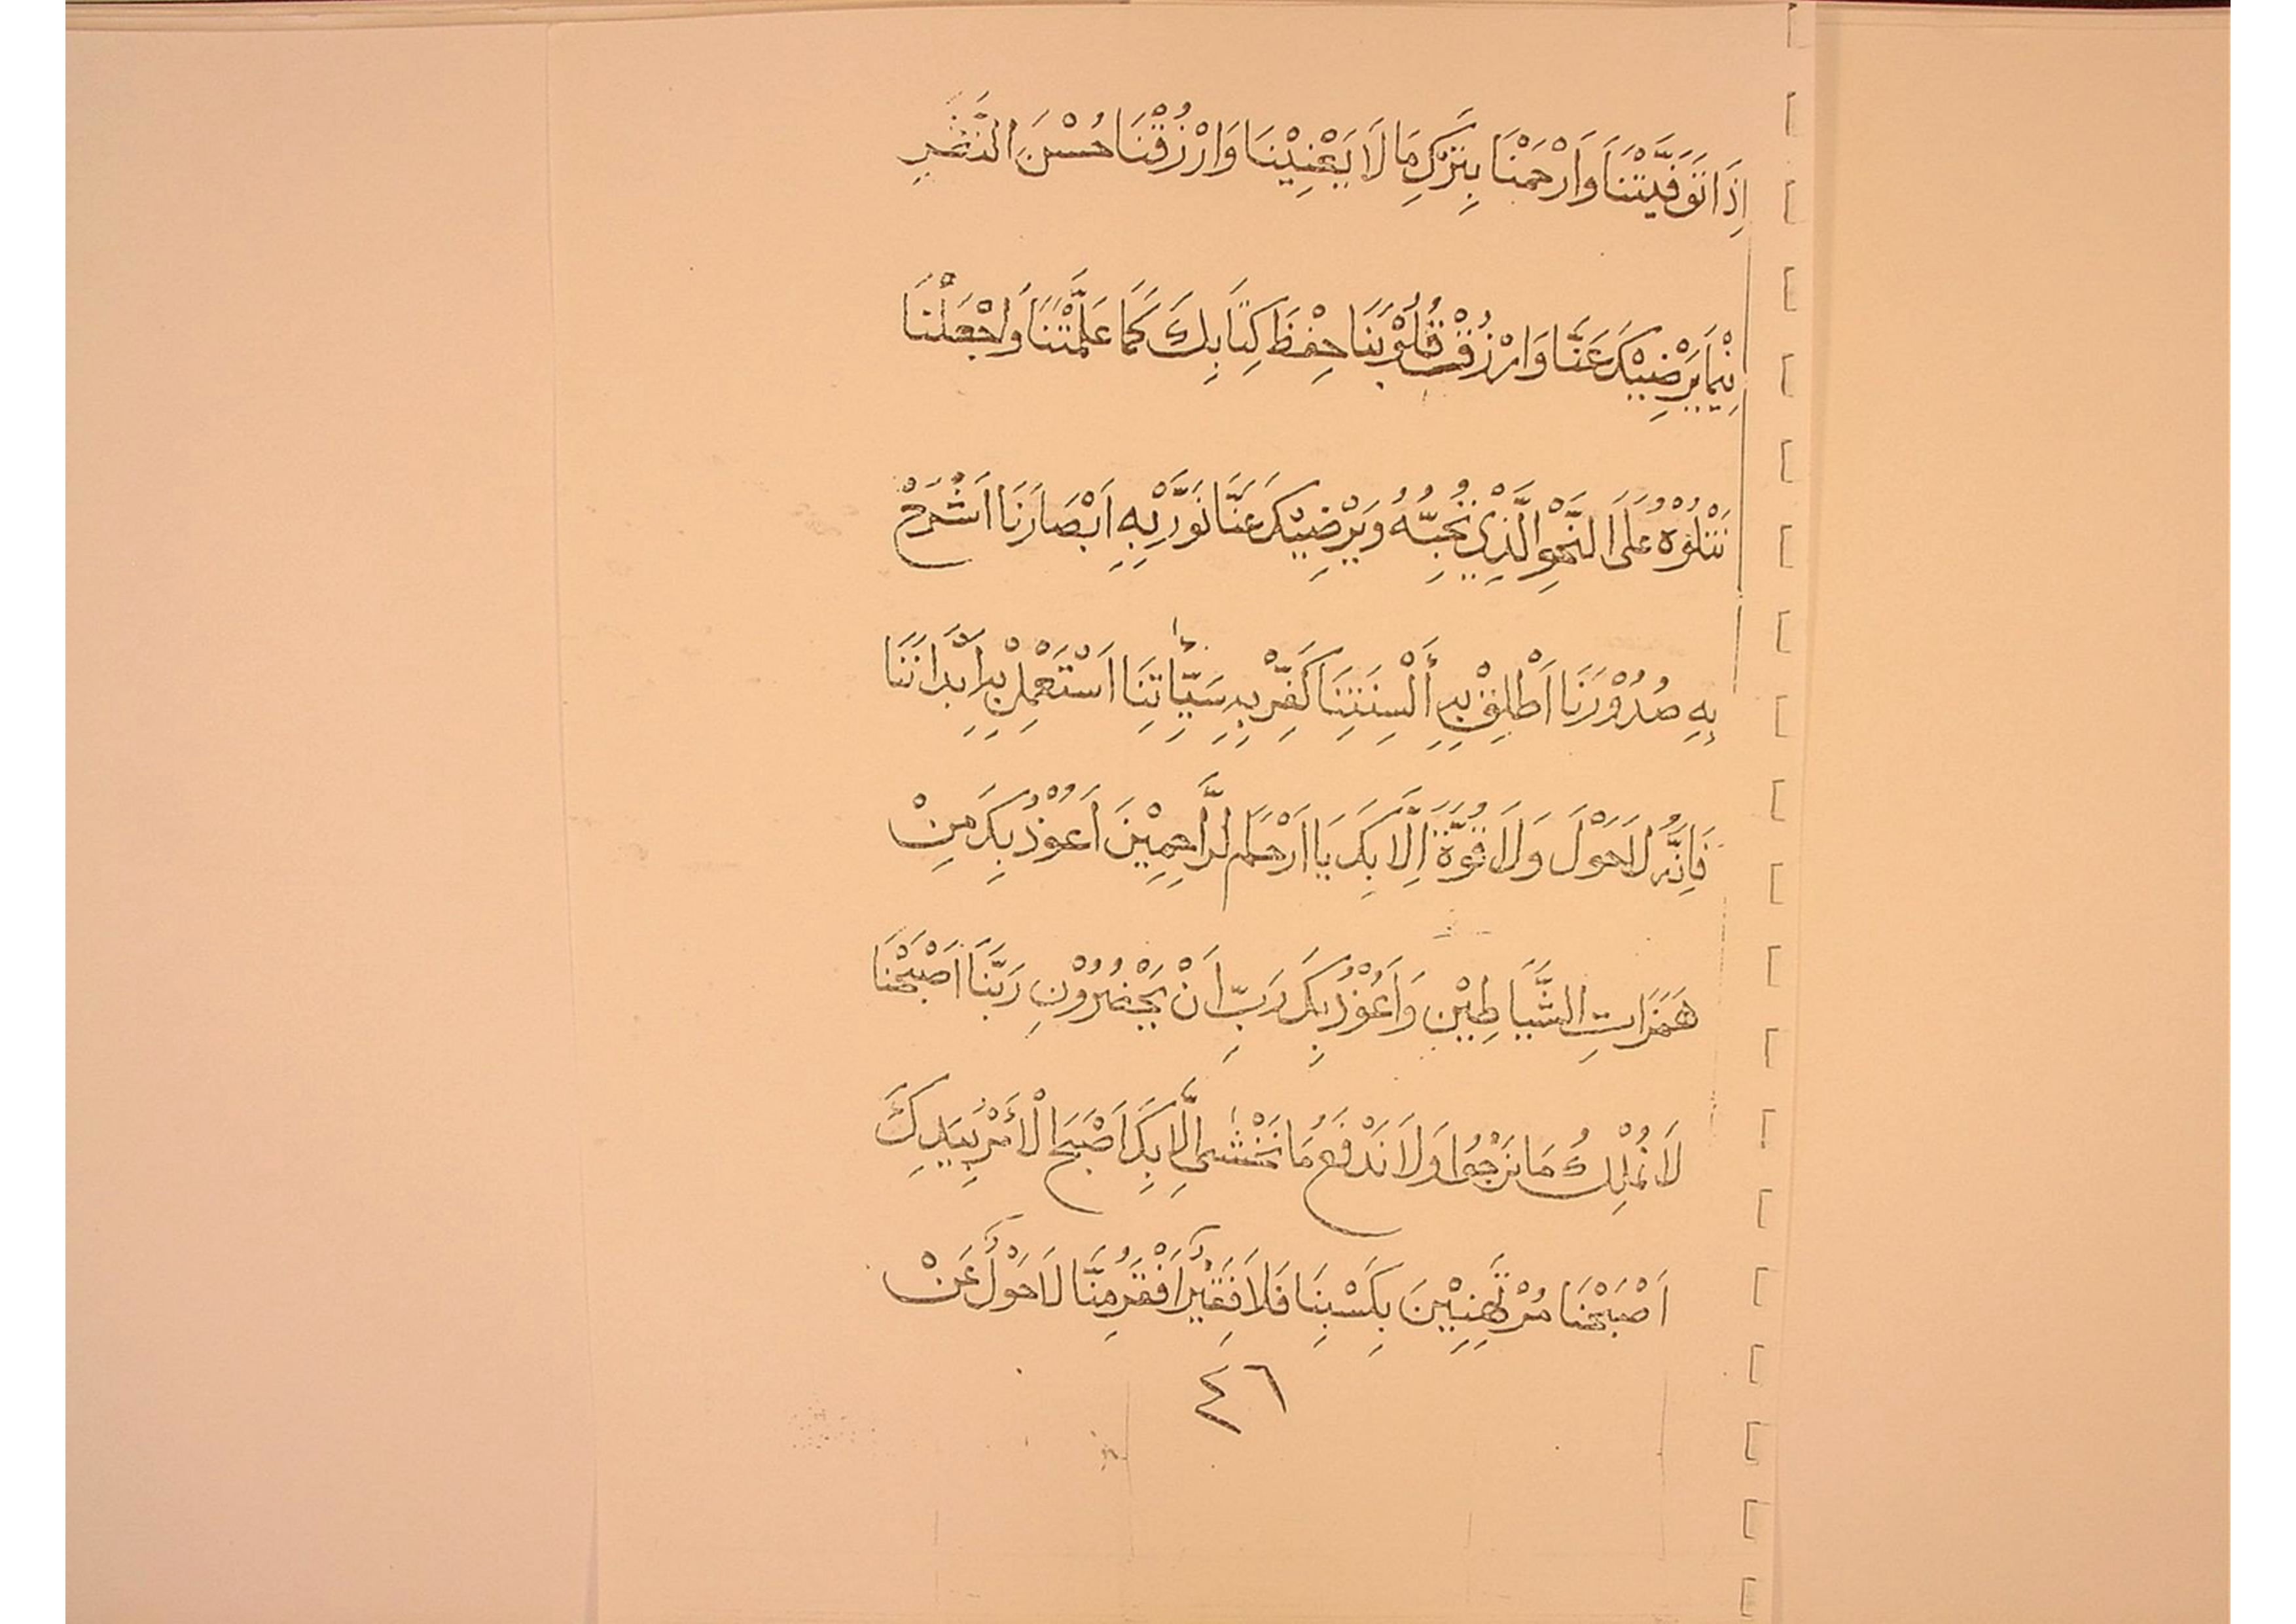 اِذَا تَوَفَّيْتَنَا وَارْحَمْنَا بِتَرْكِ مَا لَا يَعْنِيْنَا وَارْزُقْنَا حُسْنَ النَّظَرِ
فِيْمَا يَرْضِيْكَ عَنَّا وَارْزُقْ قُلُوْبَنَا حِفْظَ كِتَابِكَ كَمَا عَلَّمْتَنَا وَاجْعَلْنَا
نَتْلُوْهُ عَلَى النَّحْوِ الَّذِيْ تُحِبُّهُ وَيَرْضِيْكَ عَنَّا نَوِّرْ بِهِ اَبْصَارَنَا اَشْرَحْ
بِهِ صُدُوْرَنَا اَطْلِقْ بِهِ أَلْسِنَتَنَا كَفِّرْ بِهِ سَيِّاٰتِنَا اَسْتَعْمِلْ بِهِ اَبْدَانَنَا
فَاِنَّهُ لَاحَوْلَ وَلَا قُوَّةَ اِلَّا بِكَ يَا اَرْحَمَ الرَّاحِمِيْنَ اَعُوْذُ بِكَ مِنْ
هَمَزَاتِ الشَّيَاطِيْنِ وَاَعُوْذُ بِكَ رَبِّ اَنْ يَحْضُرُوْنِ رَبَّنَا اَصْبَحْنَا
لَا نَمْلِكُ مَا نَرْجُوْا وَلَا نَدْفَعُ مَا نَخْشٰى اِلَّا بِكَ اَصْبَحَ الْأَمْرُ بِيَدِكَ
اَصْبَحْنَا مُرْتَهِنِيْنَ بِكَسْبِنَا فَلَا فَقِيْرَ اَفْقَرُ مِنَّا لَاحَوْلَ عَنْ
٤٦